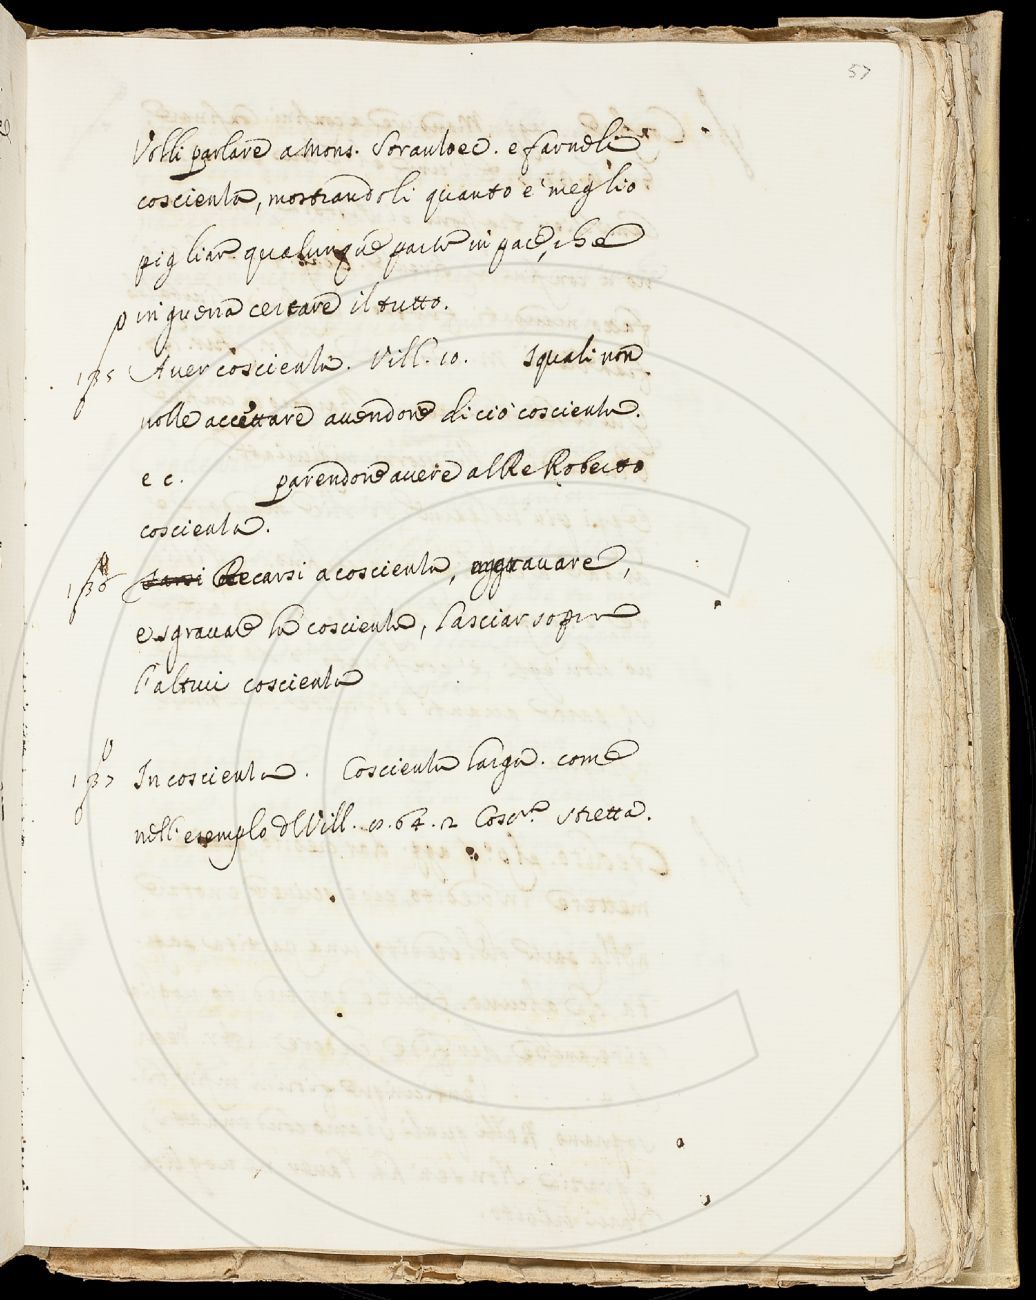 57
Volli parlare a Mons. Soranzo ec. e farneli
coscienza, mostrandoli quanto è meglio
pigliar qualunque parte in pace, che
in guerra certare il tutto.
Aver coscienza. Vill. 10. I quali non
volle accettare avendone di ciò coscienza.
ec. parendone avere al Re Roberto
coscienza.
Recarsi a coscienza, aggravare,
e sgravare la coscienza, lasciar sopra
l'altrui coscienza
In coscienza. Coscienza larga. come
nell'esempio d Vill. 64. 2 stretta.